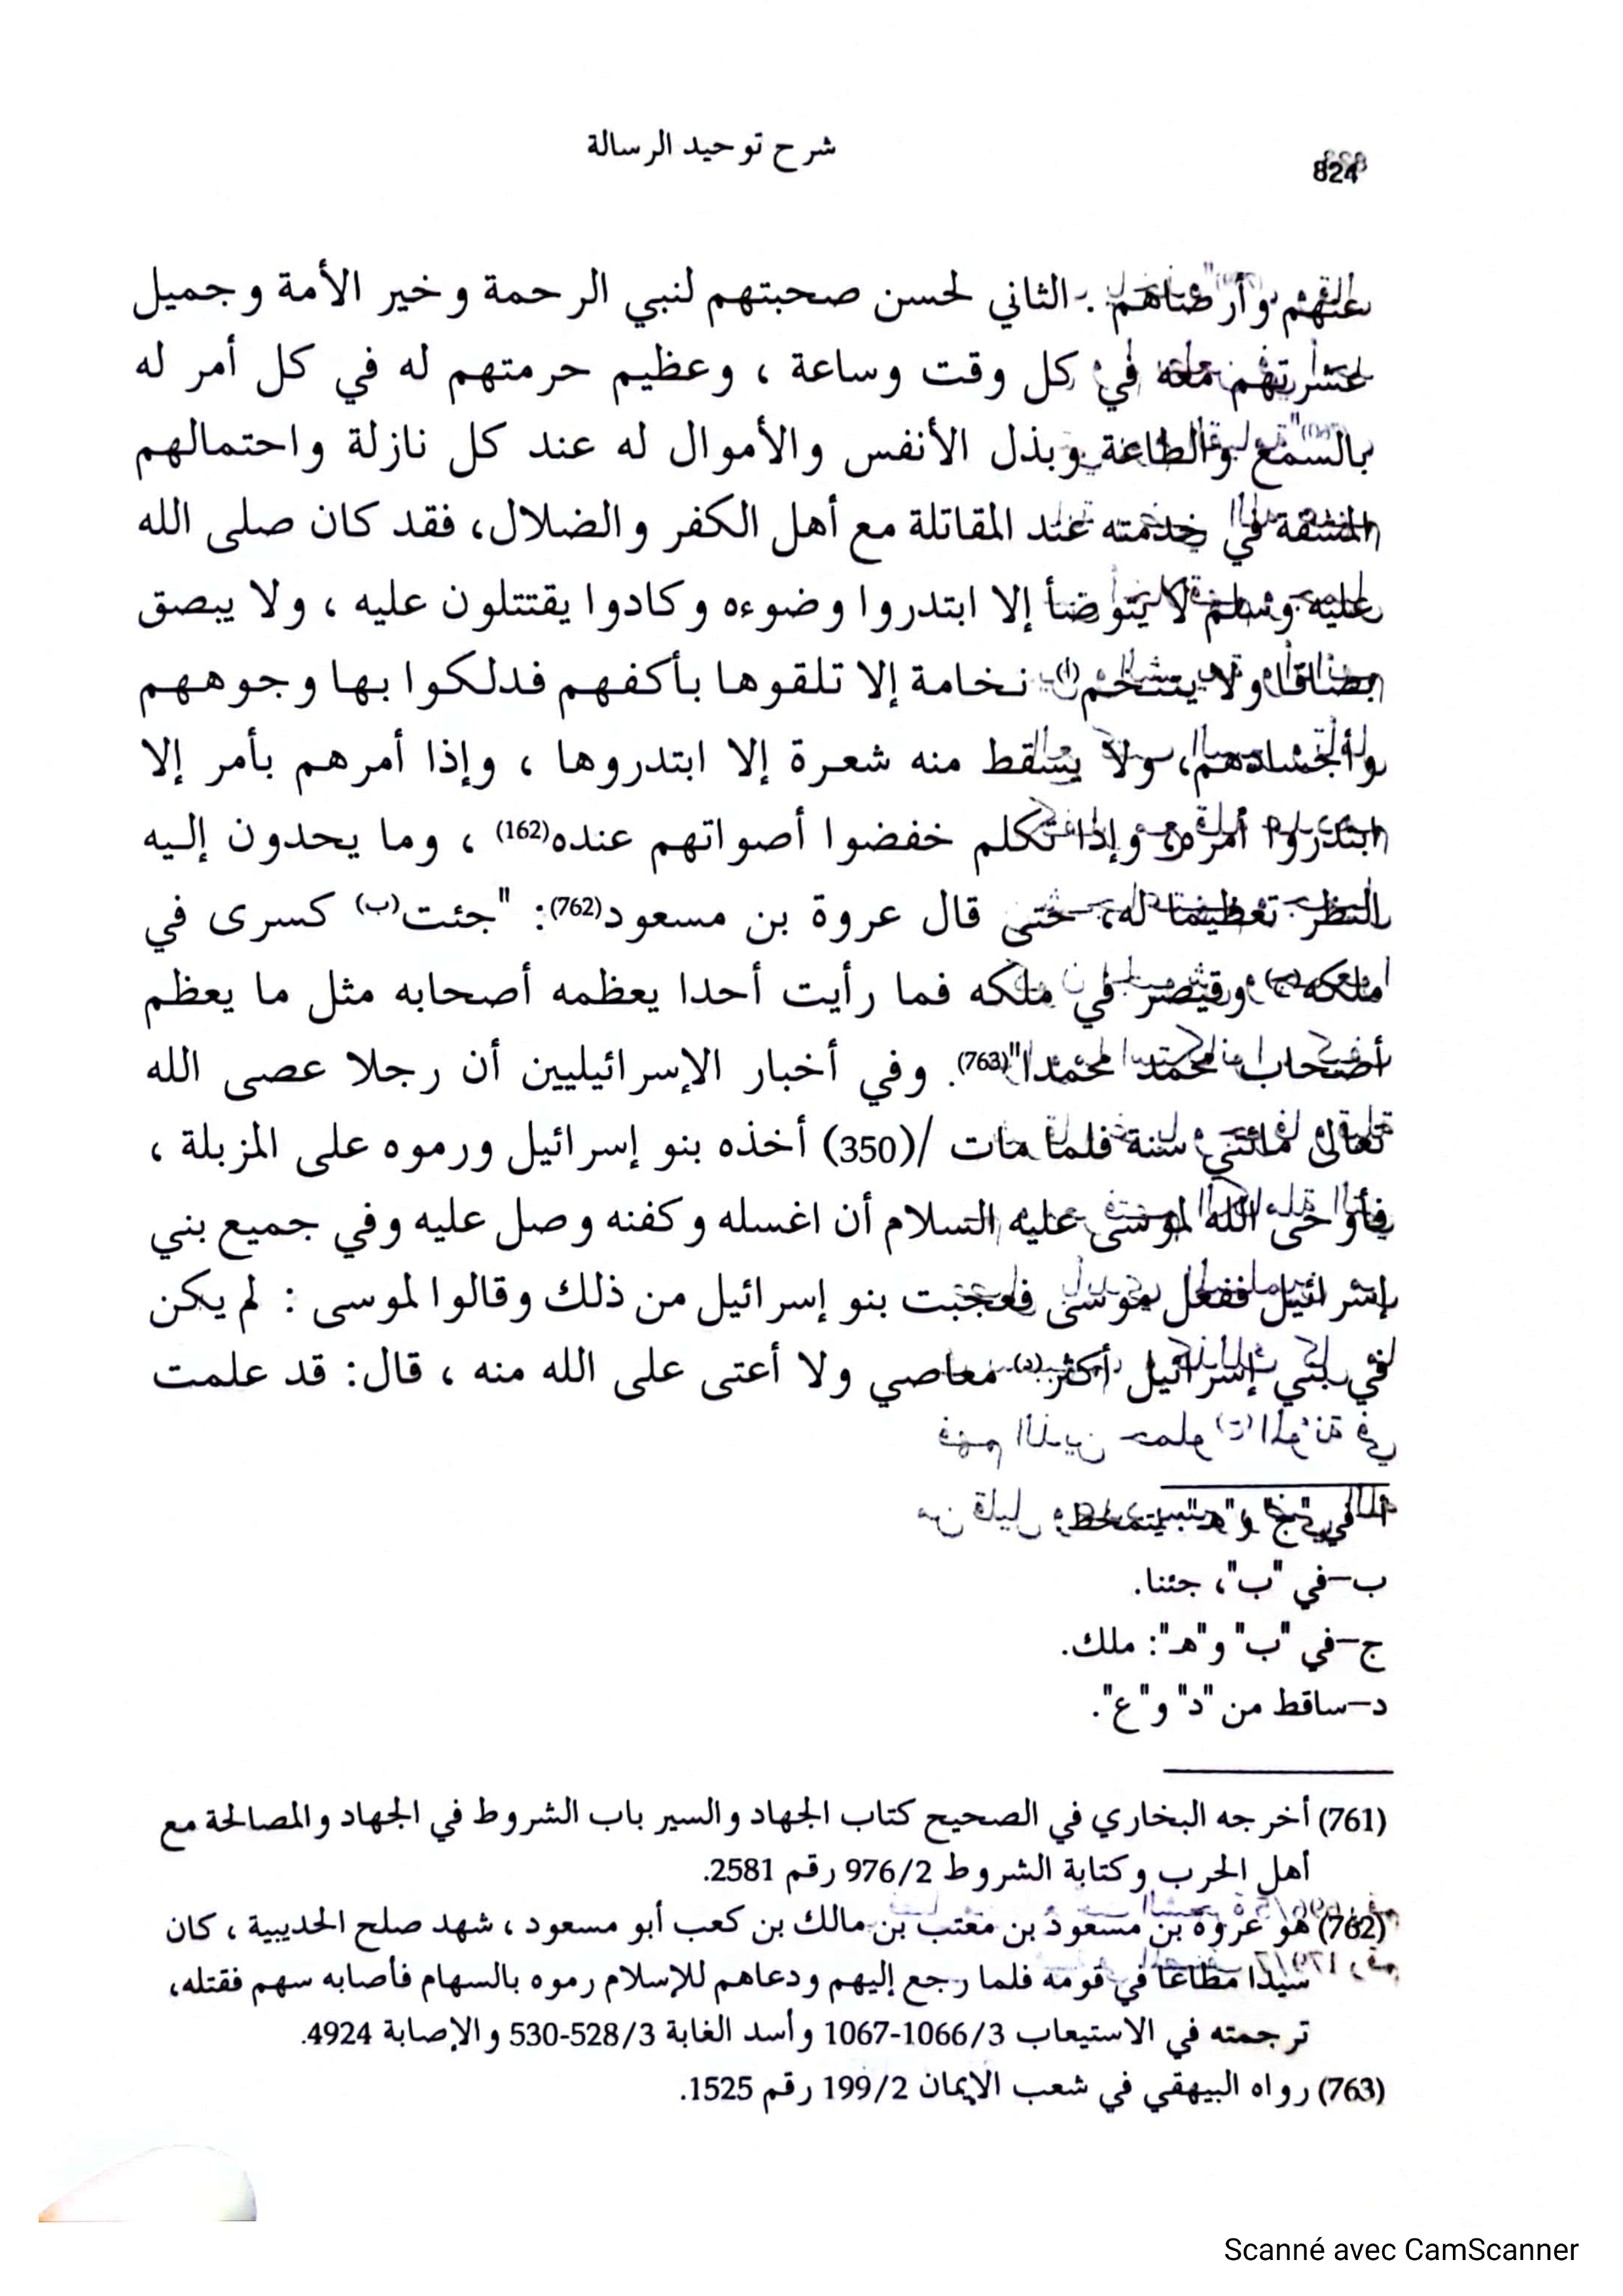 824
شرح توحيد الرسالة
عنهم وأرضاهم . الثاني لحسن صحبتهم لنبي الرحمة وخير الأمة وجميل
عشرتهم معه في كل وقت وساعة ، وعظيم حرمتهم له في كل أمر له
بالسمع والطاعة وبذل الأنفس والأموال له عند كل نازلة واحتمالهم
المشقة في خدمته عند المقاتلة مع أهل الكفر والضلال، فقد كان صلى الله
عليه وسلم لا يتوضأ إلا ابتدروا وضوءه وكادوا يقتتلون عليه ، ولا يبصق
بصاقا ولا يتنخم(أ) نخامة إلا تلقوها بأكفهم فدلكوا بها وجوههم
وأجسادهم، ولا يسقط منه شعرة إلا ابتدروها ، وإذا أمرهم بأمر إلا
ابتدروا أمره، وإذا تكلم خفضوا أصواتهم عنده(162) ، وما يحدون إليه
النظر تعظيما له، حتى قال عروة بن مسعود(762): "جئت(ب) كسرى في
ملكه(ج) وقيصر في ملكه فما رأيت أحدا يعظمه أصحابه مثل ما يعظم
أصحاب محمد محمدا"(763). وفي أخبار الإسرائيليين أن رجلا عصى الله
تعالى مائتي سنة فلما مات /(350) أخذه بنو إسرائيل ورموه على المزبلة ،
فأوحى الله لموسى عليه السلام أن اغسله وكفنه وصل عليه وفي جميع بني
إسرائيل ففعل موسى فعجبت بنو إسرائيل من ذلك وقالوا لموسى : لم يكن
في بني إسرائيل أكثر(د) معاصي ولا أعتى على الله منه ، قال: قد علمت
أ-في "ج" و"هـ": يتمخط.
ب-في "ب"، جئنا.
ج-في "ب" و"هـ": ملك.
د-ساقط من "د" و"ع".
(761) أخرجه البخاري في الصحيح كتاب الجهاد والسير باب الشروط في الجهاد والمصالحة مع
أهل الحرب وكتابة الشروط 976/2 رقم 2581.
(762) هو عروة بن مسعود بن معتب بن مالك بن كعب أبو مسعود ، شهد صلح الحديبية ، كان
سيدا مطاعا في قومه فلما رجع إليهم ودعاهم للإسلام رموه بالسهام فأصابه سهم فقتله،
ترجمته في الاستيعاب 1066/3-1067 وأسد الغابة 528/3-530 والإصابة 4924.
(763) رواه البيهقي في شعب الإيمان 199/2 رقم 1525.
Scanné avec CamScanner